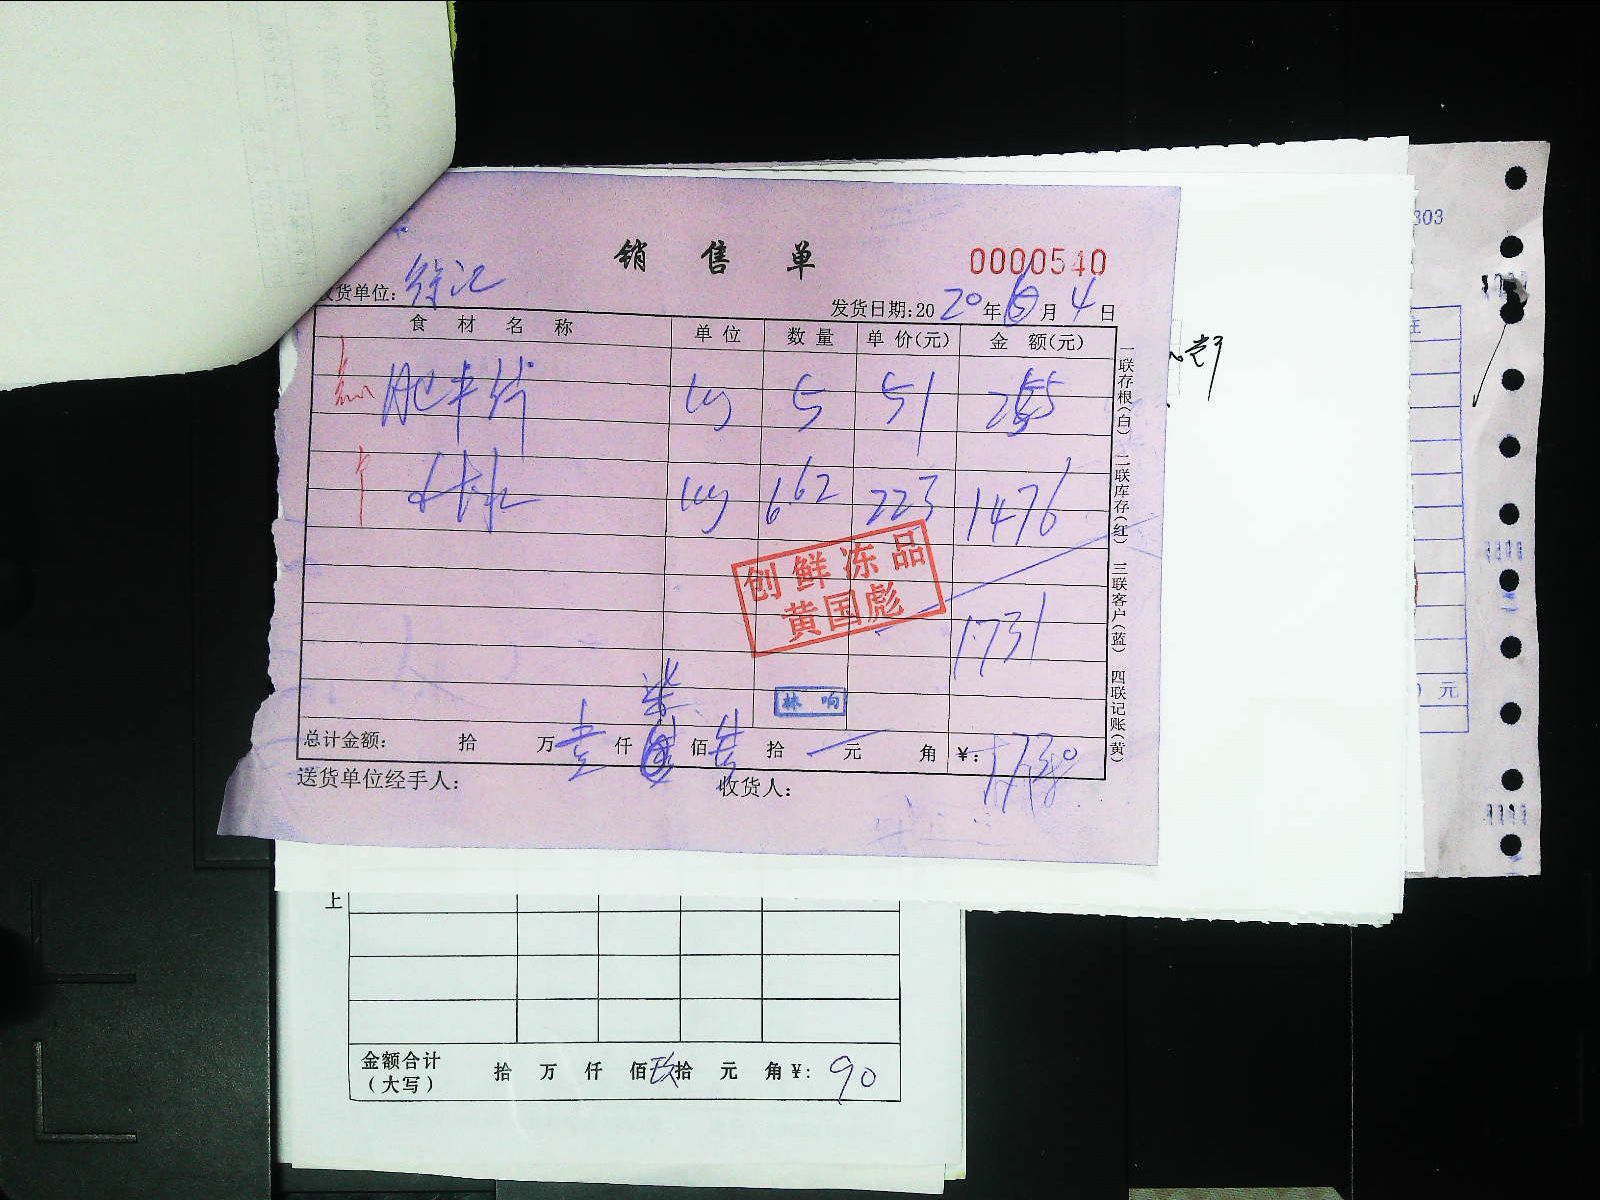 销 售 单
0000540
收货单位: 徐汇
发货日期:2020年6月4日
食 材 名 称 单 位 数 量 单 价(元) 金 额(元)
肥牛片 kg 5 51 255
kg 6.62 223 1476
创鲜冻品
黄国彪
1731
林 响
柒
总计金额: 拾 万 壹 仟 佰 拾 元 角 ¥: 1730
送货单位经手人: 收货人:
一联存根(白) 二联库存(红) 三联客户(蓝) 四联记账(黄)
303
元
上
金额合计
(大写) 拾 万 仟 佰 玖 拾 元 角 ¥: 90